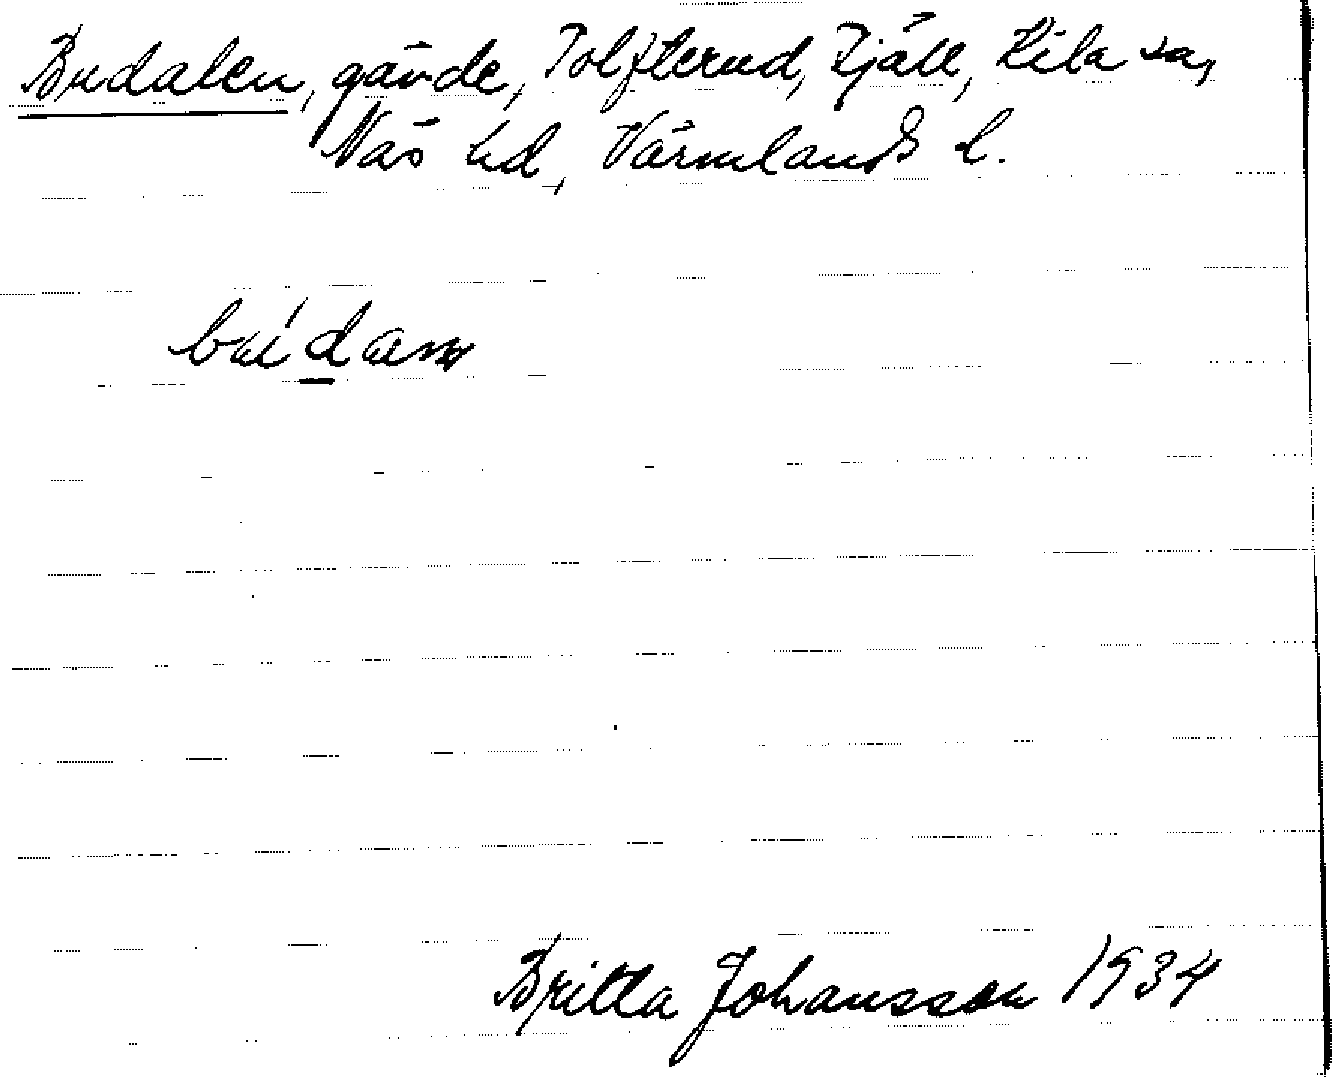 Budalen, gärde, Tolfterud, Tjäll, Kila sn,
Näs hd, Värmlands l.
Britta Johansson 1934